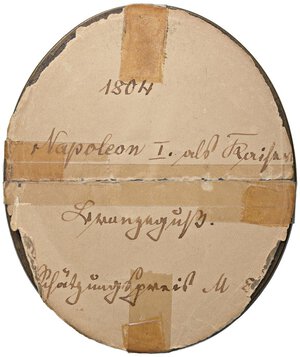 1804
Napoleon I. als Kaiser
Bronzeguß.
Schätzungspreis M